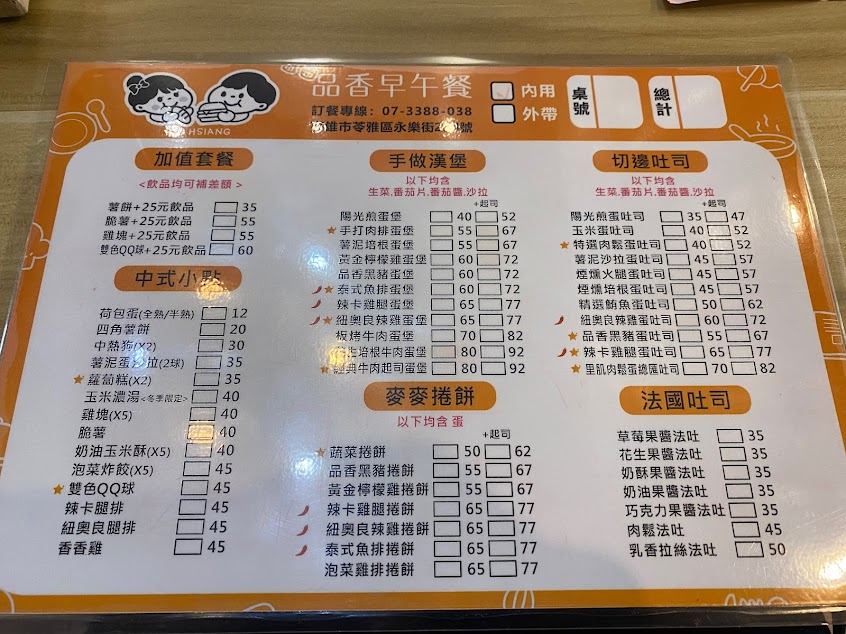 品香早午餐
訂餐專線：07-3388-038
雄市苓雅區永樂街2 號
HSIANG
內用
外帶
桌號
總計
加值套餐
<飲品均可補差額>
薯餅+25元飲品 35
脆薯+25元飲品 55
雞塊+25元飲品 55
雙色QQ球+25元飲品 60
中式小點
荷包蛋(全熟/半熟) 12
四角薯餅 20
中熱狗(X2) 30
薯泥蛋沙拉(2球) 35
蘿蔔糕(X2) 35
玉米濃湯<冬季限定> 40
雞塊(X5) 40
脆薯 40
奶油玉米酥(X5) 40
泡菜炸餃(X5) 45
雙色QQ球 45
辣卡腿排 45
紐奧良腿排 45
香香雞 45
手做漢堡
以下均含
生菜.番茄片.番茄醬.沙拉
+起司
陽光煎蛋堡 40 52
手打肉排蛋堡 55 67
薯泥培根蛋堡 55 67
黃金檸檬雞蛋堡 60 72
品香黑豬蛋堡 60 72
泰式魚排蛋堡 60 72
辣卡雞腿蛋堡 65 77
紐奧良辣雞蛋堡 65 77
板烤牛肉蛋堡 70 82
培根牛肉蛋堡 80 92
經典牛肉起司蛋堡 80 92
麥麥捲餅
以下均含 蛋
+起司
蔬菜捲餅 50 62
品香黑豬捲餅 55 67
黃金檸檬雞捲餅 55 67
辣卡雞腿捲餅 65 77
紐奧良辣雞捲餅 65 77
泰式魚排捲餅 65 77
泡菜雞排捲餅 65 77
切邊吐司
以下均含
生菜.番茄片.番茄醬.沙拉
+起司
陽光煎蛋吐司 35 47
玉米蛋吐司 40 52
特選肉鬆蛋吐司 40 52
薯泥沙拉蛋吐司 45 57
煙燻火腿蛋吐司 45 57
煙燻培根蛋吐司 45 57
精選鮪魚蛋吐司 50 62
紐奧良辣雞蛋吐司 60 72
品香黑豬蛋吐司 55 67
辣卡雞腿蛋吐司 65 77
里肌肉鬆蛋總匯吐司 70 82
法國吐司
草莓果醬法吐 35
花生果醬法吐 35
奶酥果醬法吐 35
奶油果醬法吐 35
巧克力果醬法吐 35
肉鬆法吐 45
乳香拉絲法吐 50